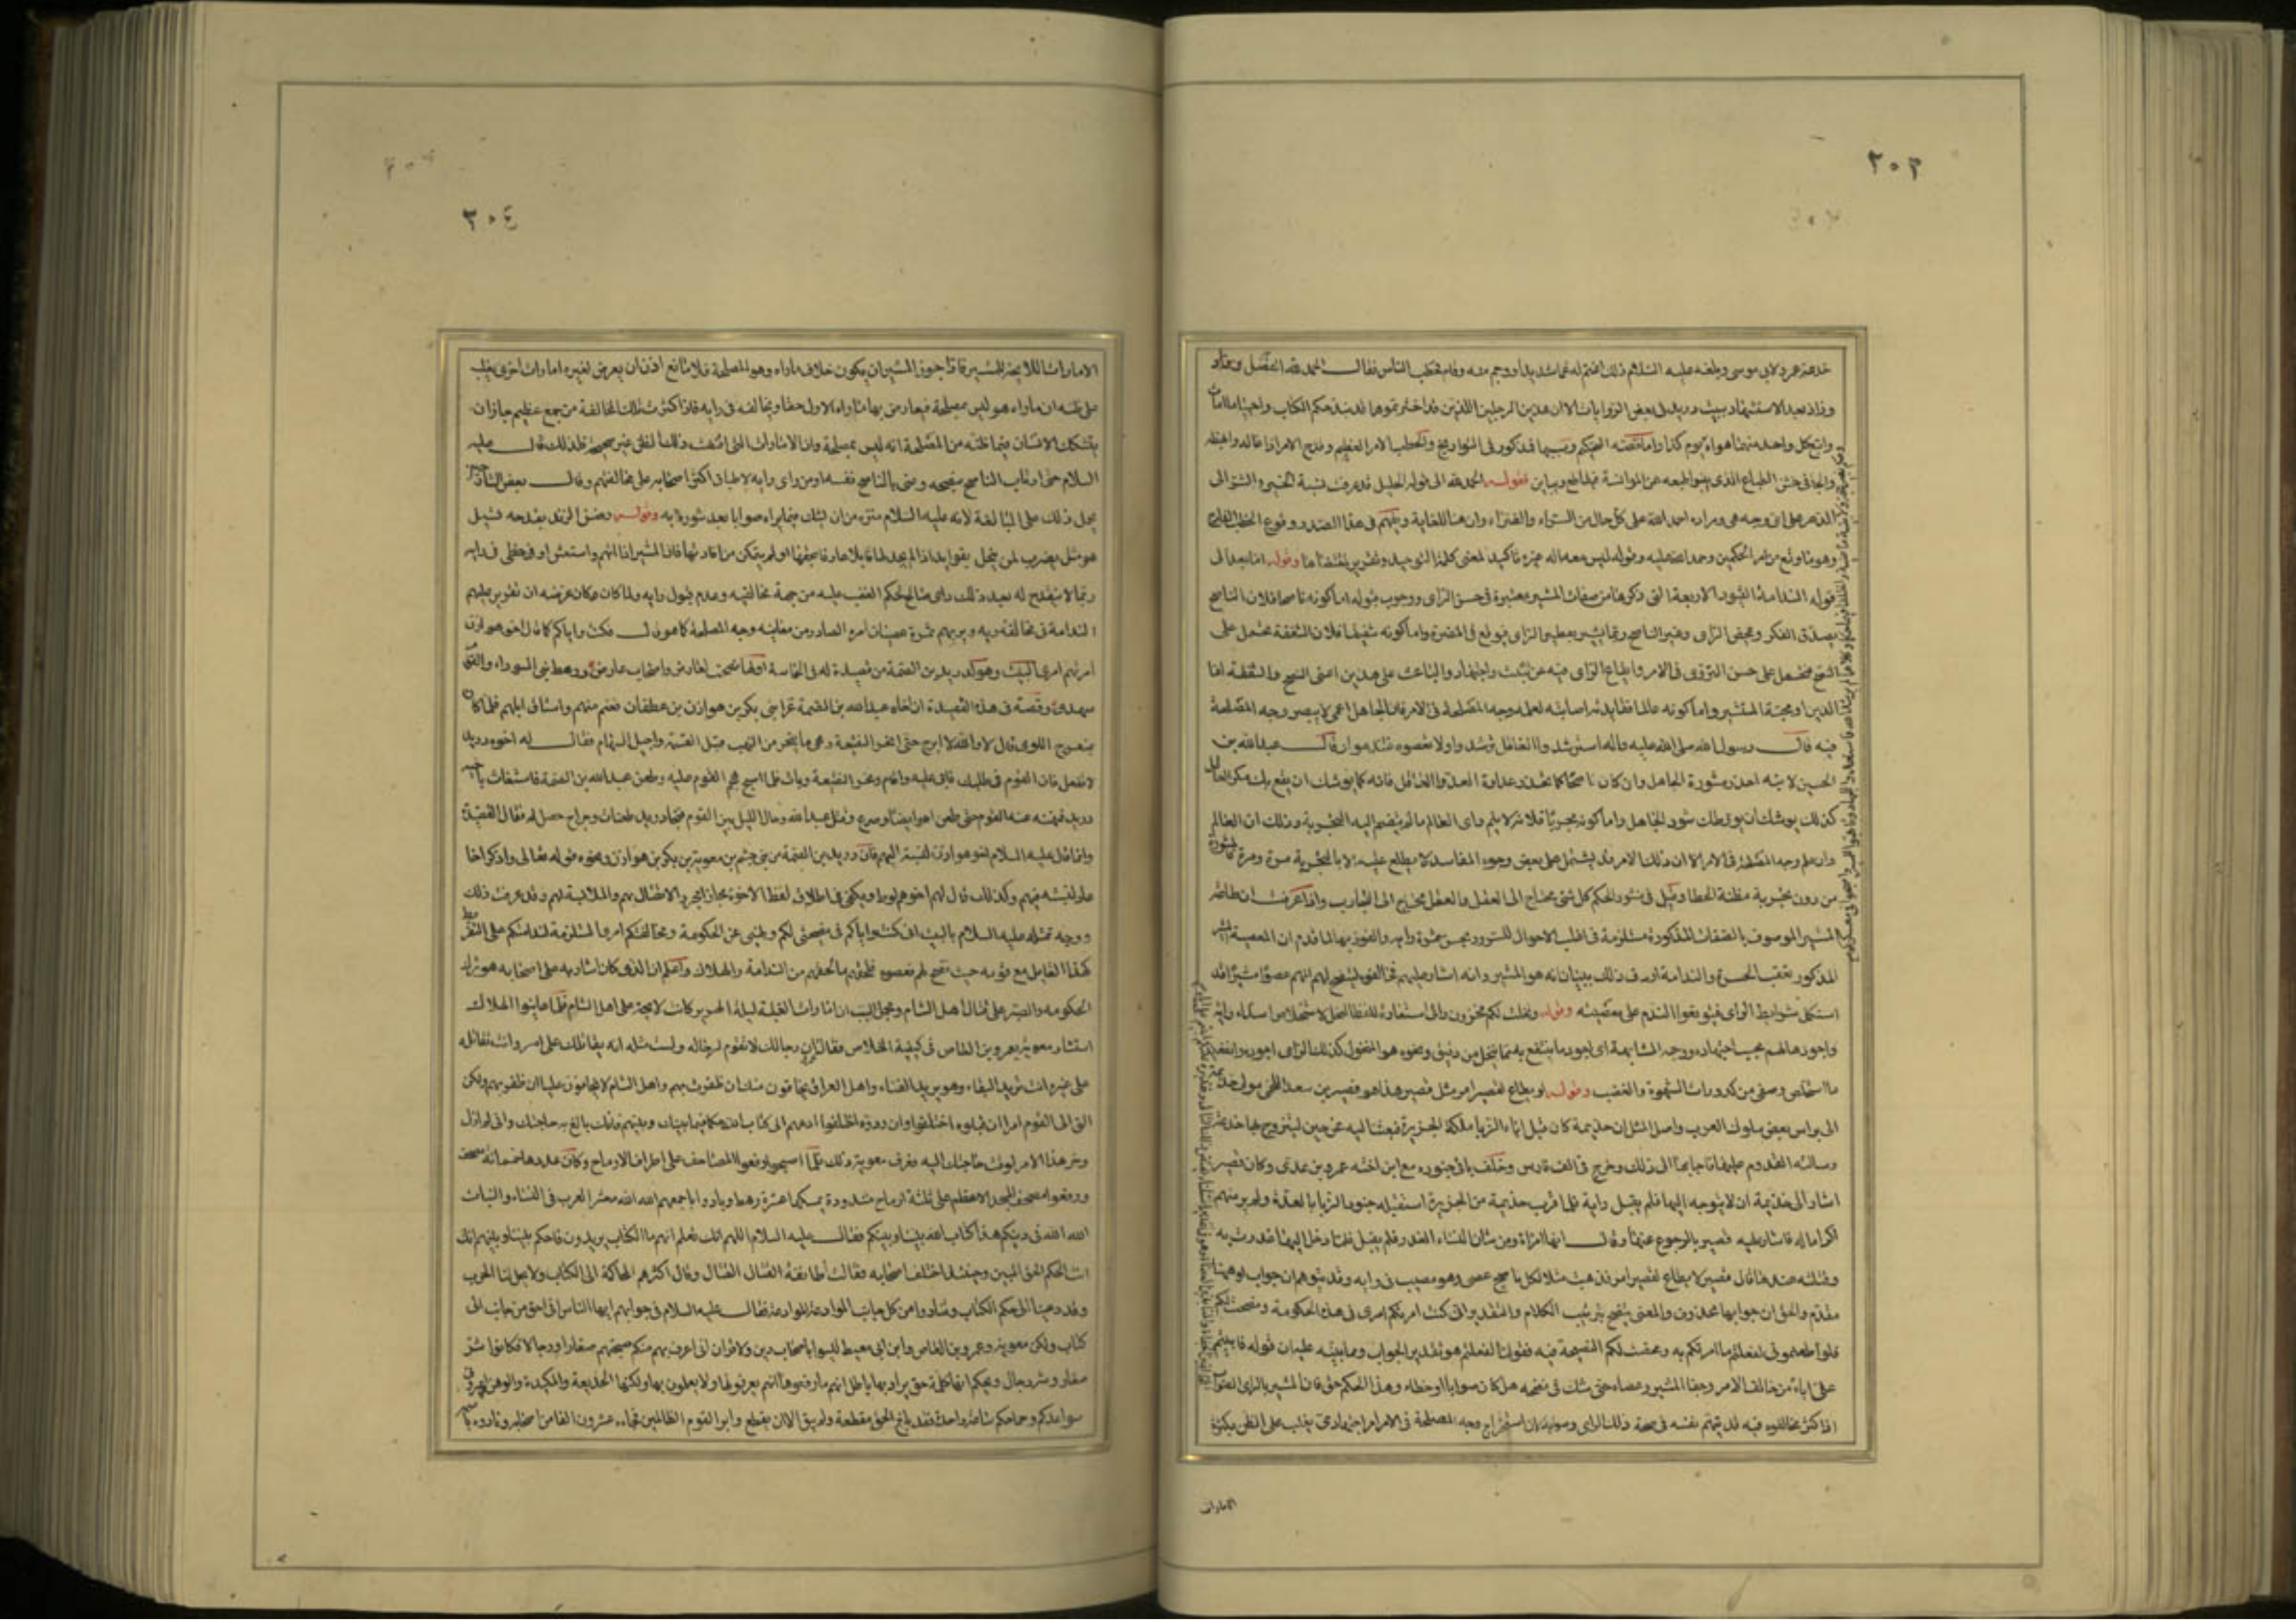 ٣٠٣
خدعة عمرو لابي موسى وبلغه عليه السلام ذلك اغتم له غما شديدا ووجم منه وقام فخطب الناس فقال الحمد لله الفصل
وزاد بعد الاستشهاد ببيت دريد في بعض الروايات الا ان هذين الرجلين اللذين قد اخترتموهما قد نبذا حكم الكتاب واحييا ما امات
واتبع كل واحد منهما هواه واما قصة التحكيم وسببها فمذكور في التواريخ والخطب الامر العظيم وفدح الامر اذا عاله وابهظه
والجافي خشن الطباع الذي ينبو طبعه عن الموانسة فيقاطع ويباين فقوله الحمد لله الى قوله الجليل قد عرفت نسبة الخير والشر الى
الدهر على اي وجه هي ومراده احمد الله على كل حال من السراء والضراء وان هنا للغاية ويفهم من هذا الصدر وقوع الخطب الفادح
وهو ما وقع من امر الحكمين وحمد الله عليه وقوله ليس معه اله غيره تاكيد لمعنى كلمة التوحيد وتقرير لمقتضاها وقوله اما بعد الى
قوله الندامة القيود الاربعة التي ذكرها من صفات المشير معتبرة في حسن الراي ووجوب قبوله اما كونه ناصحا فلان الناصح
يصدق الفكر ويمحض الراي وغير الناصح ربما يشير بفطير الراي فيوقع في المضرة واما كونه شفيقا فلان الشفقة تحمل على
النصح فتحمل على حسن التروي في الامر وايقاع الراي فيه عن تثبت واجتهاد والباعث على هذين اعني النصح والشفقة اما
الدين او محبة المستشير واما كونه عالما ففايدته اصابته لعلمه وجه المصلحة في الامر فان الجاهل اعمى لا يبصر وجه المصلحة
فيه قال رسول الله صلى الله عليه واله استرشدوا العاقل ترشدوا ولا تعصوه تندموا وقال عبدالله بن
الحسين لابنه احذر مشورة الجاهل وان كان ناصحا كما تحذر عداوة العدو العاقل فانه كما يوشك ان يقع بك مكر العاقل
كذلك يوشك ان يورطك شور الجاهل واما كونه مجربا فلانه لا يتم راي العالم ما لم ينضم اليه التجربة وذلك ان العالم
وان علم وجه المصلحة في الامر الا ان ذلك الامر قد يشتمل على بعض وجوه المفاسد لا يطلع عليه الا بالتجربة مرة ومرة فالمشورة
من دون تجربة مظنة الخطا وقيل في منثور الحكم كل شي محتاج الى العقل والعقل محتاج الى التجارب واذا عرفت ان طاعة
المشير الموصوف بالصفات المذكورة مستلزمة في اغلب الاحوال للسرور بحسن ثمرة رايه والفوز بها لما قدم ان المعصية للمشير
المذكور تعقب الحسرة والندامة اردف ذلك ببيان انه هو المشير وانه اشار عليهم فخالفوه ليتضح لهم انهم عصوا مشيرا قد
استكمل شرايط الراي فيتوقعوا الندم على معصيته وقوله ونخلت لكم مخزون رايي استعارة للفظ النخل لاستخلاص اسد ارايه
واجودها لهم بحسب اجتهاده ووجه المشابهة اي اجود ما ينتفع به مما ينخل من دقيق ونحوه هو المنخول كذلك الراي اجوده وانفعه
ما استخلص وصفى من كدورات الشهوة والغضب وقوله لو يطاع لقصير امر مثل قصير هذا هو قصير بن سعد اللخمي مولى جذيمة
الابرش بعض ملوك العرب واصل المثل ان جذيمة كان قتل ابا الزبا ملكة الجزيرة فبعثت اليه عن حين ليتزوج بها خدعة
وسالته القدوم عليها فاجابها الى ذلك وخرج في الف فارس وخلف باقي جنوده مع ابن اخته عمرو بن عدي وكان قصير
اشار الى جذيمة ان لا يتوجه اليها فلم يقبل رايه فلما قرب جذيمة من الجزيرة استقبله جنود الزبا بالعدة ولم ير منهم
اكراما له فاشار عليه قصير بالرجوع عنها وقال انها امراة ومن شان النساء الغدر فلم يقبل فلما دخل اليها غدرت به
وقتلته فعندها قال قصير لا يطاع لقصير امر فذهبت مثلا لكل ناصح عصي وهو مصيب في رايه وقد يتوهم ان جواب لو ههنا
مقدم والحق ان جوابها محذوف والمعنى يتضح بترتيب الكلام والتقدير اني كنت امرتكم امري في هذه الحكومة ونصحت لكم
فلو اطعتموني لفعلتم ما امرتكم به ومحضت لكم النصيحة فيه فقولنا لفعلتم هو تقدير الجواب ومما ينبه عليه ان قوله فابيتم
علي اباء من خالف الامر وجفا المشير وعصاه حتى شك في نصحه هل كان صوابا او خطاء وهذا الحكم حق فان المشير بالراي الصواب
اذا كثر مخالفوه فيه قد يتهم نفسه في صحة ذلك الراي وصوابه لان استخراج وجه المصلحة في الامر امر اجتهادي يغلب على الظن بكثرة
الامارات
٣٠٤
الامارات اللايحة للمشير فاذا جوز المشير ان يكون خلاف ما راه هو المصلحة فلا مانع اذن ان يعرض لغيره امارات اخرى يغلب
على ظنه ان ما راه هو ليس بمصلحة فيعارض بها ما راه الاول حقا ويخالفه في رايه فاذا كثرت تلك المخالفة من جمع عظيم جاز ان
يتشكك الانسان فيما ظنه من المصلحة انه ليس بمصلحة وان الامارات التي اتفقت وذلك الظن غير صحيحة فلذلك قال عليه
السلام حتى ارتاب الناصح بنصحه وعنى بالناصح نفسه او من راى رايه لاطباق اكثر اصحابه على مخالفتهم وقال بعض الشارحين
يحمل ذلك على المبالغة لانه عليه السلام منزه من ان يشك فيما يراه صوابا بعد شوره به وقوله وضن الزند بقدحه قيل
هو مثل يضرب لمن يبخل بفوايده اذا لم يجد لها قابلا عارفا بحقها او لم يتمكن من افادتها فان المشير اذا اتهم واستغش او خطي في رايه
ربما لا ينقدح له بعد ذلك راى صالح لحكم الغضب عليه من جهة مخالفته وعدم قبول رايه ولما كان غرضه ان تقرير عليهم
الندامة في مخالفة رايه ويريهم ثمرة عصيان امره الصادر من معاينه وجه المصلحة كما هو قال فكنت واياكم كما قال اخو هوازن
امرتهم امري البيت وهو لدريد بن الصمة من قصيدة له في الحماسة اولها نصحت لعارض واصحاب عارض ورهط بني السوداء والقوم
شهدي وقصته في هذه القصيدة ان اخاه عبدالله بن الصمة غزا بني بكر بن هوازن بن غطفان فغنم منهم واستاق ابلهم فلما كان
بمنعرج اللوى قال لا والله لا ابرح حتى انحر النقيعة وهي ما ينحر من النهب قبل القسمة واجيل السهام فقال له اخوه دريد
لا تفعل فان القوم في طلبك فابى عليه واقام ونحر النقيعة وبات فلما اصبح هجم القوم عليه وطعن عبدالله بن الصمة فاستغاث باخيه
دريد فنهنه عنه القوم حتى طعن هو ايضا وصرع وقتل عبدالله وحال الليل بين القوم فنجا دريد بعد طعنات وجراح حصل له فقال القصيدة
وانما قال عليه السلام اخو هوازن لنسبته اليهم فان دريد بن الصمة من بني جشم بن معوية بن بكر بن هوازن ونحوه قوله تعالى واذكر اخا
عاد لنسبته فيهم وكذلك قال لهم اخوهم لوط ويكفي في اطلاق لفظ الاخوة مجازا مجرد الاتصال بهم والملابسة لهم وقد عرفت ذلك
ووجه تمثله عليه السلام بالبيت اني كنت واياكم في نصيحتي لكم ونهيي عن الحكومة ومخالفتكم امري المستلزمة لندامتكم على التفريط
كهذا القايل مع قومه حيث نصح لهم فعصوه فلحقهم ما لحقهم من الندامة والهلاك واعلم ان الذي كان اشار به على اصحابه هو ترك
الحكومه والصبر على قتال اهل الشام ومجمل السبب ان امارات الغلبة ليلة الهرير كانت لايحة على اهل الشام فلما عاينوا الهلاك
استشار معوية بعمرو بن العاص في كيفية الخلاص فقال ان رجالك لا تقوم لرجاله ولست مثله انه يقاتلك على امر وانت تقاتله
على غيره انت تريد البقاء وهو يريد الفناء واهل العراق يخافون منك ان ظفرت بهم واهل الشام لا يخافون عليا ان ظفر بهم ولكن
الق الى القوم امرا ان قبلوه اختلفوا وان ردوه اختلفوا ادعهم الى كتاب الله حكما فيما بينك وبينهم فانك بالغ به حاجتك واني لم ازل
ادخر هذا الامر لوقت حاجتك اليه فعرف معوية ذلك فلما اصبحوا رفعوا المصاحف على اطراف الارماح وكان عددها خمسمائة مصحف
ورفعوا مصحف المسجد الاعظم على ثلثة ارماح مشدودة يمسكها عشرة رهط ونادوا باجمعهم الله الله معشر العرب في النساء والبنات
الله الله في دينكم هذا كتاب الله بيننا وبينكم فقال عليه السلام اللهم انك تعلم انهم ما الكتاب يريدون فاحكم بيننا وبينهم انك
انت الحكم الحق المبين وحينئذ اختلف اصحابه فقالت طايفة القتال القتال وقال اكثرهم المحاكمة الى الكتاب ولا يحل لنا الحرب
وقد دعينا الى حكم الكتاب وتنادوا من كل جانب الموادعة الموادعة فقال عليه السلام في جوابهم ايها الناس اني احق من اجاب الى
كتاب ولكن معوية وعمرو بن العاص وابن ابي معيط ليسوا باصحاب دين ولا قران اني اعرف بهم منكم صحبتهم صغارا ورجالا فكانوا شر
صغار وشر رجال ويحكم انها كلمة حق يراد بها باطل انهم ما رفعوها انهم يعرفونها ولا يعملون بها ولكنها الخديعة والمكيدة والوهن اعيروني
سواعدكم وجماجمكم ساعة واحدة فقد بلغ الحق مقطعه ولم يبق الا ان يقطع دابر القوم الظالمين فجاءه عشرون الفا من اصحابه ونادوه باسمه